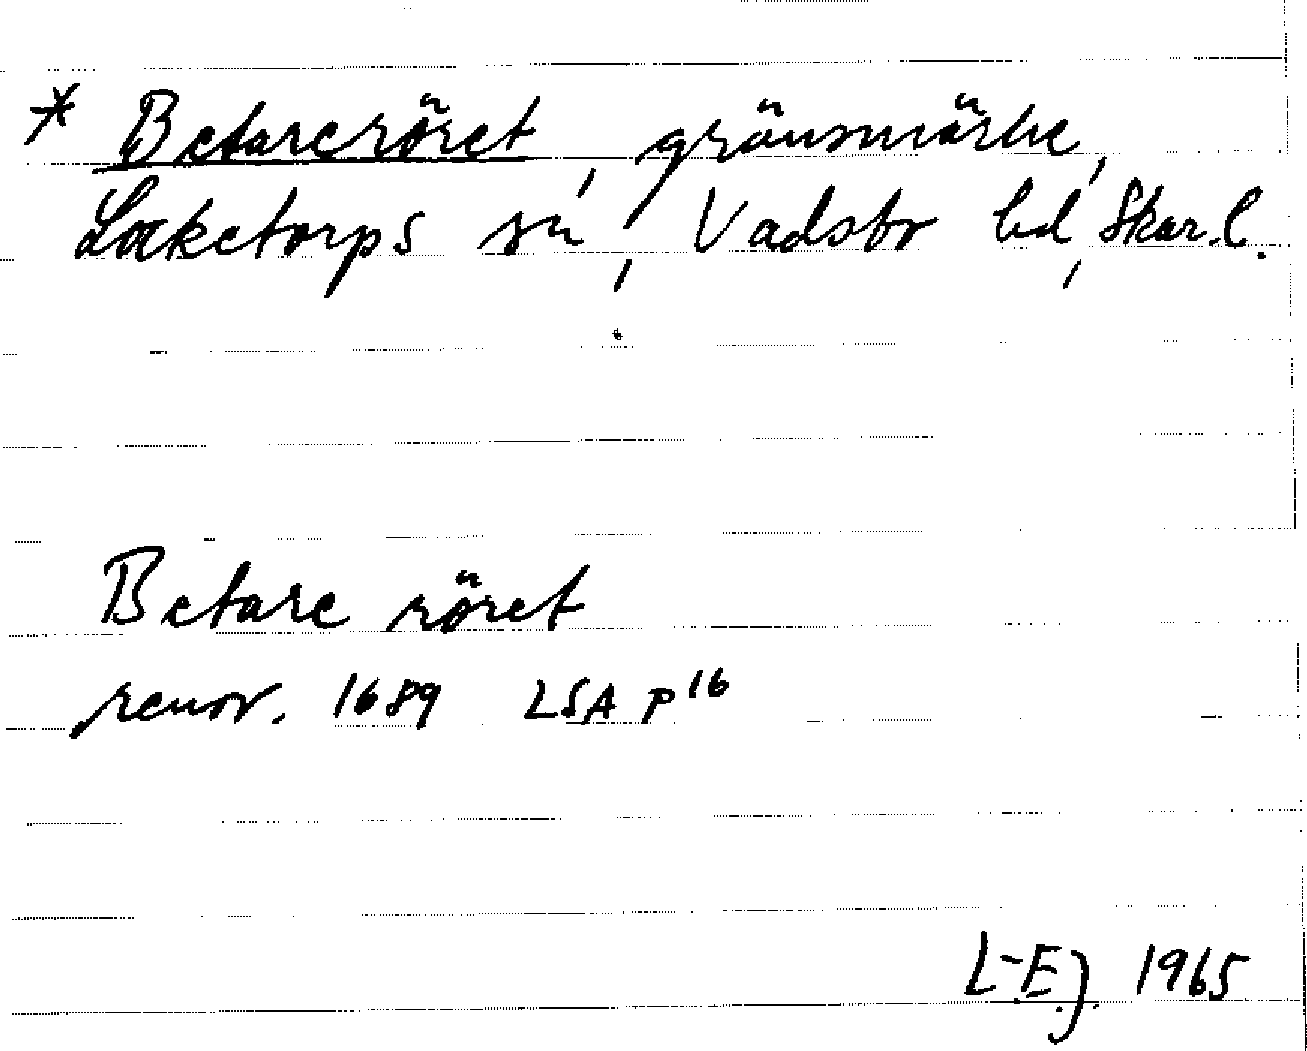 * Betareröret, gränsmärke,
Laketorps sn, Vadsbo hd, Skar.l.
Betare röret
renov. 1689 LSA P16
L-E.J. 1965